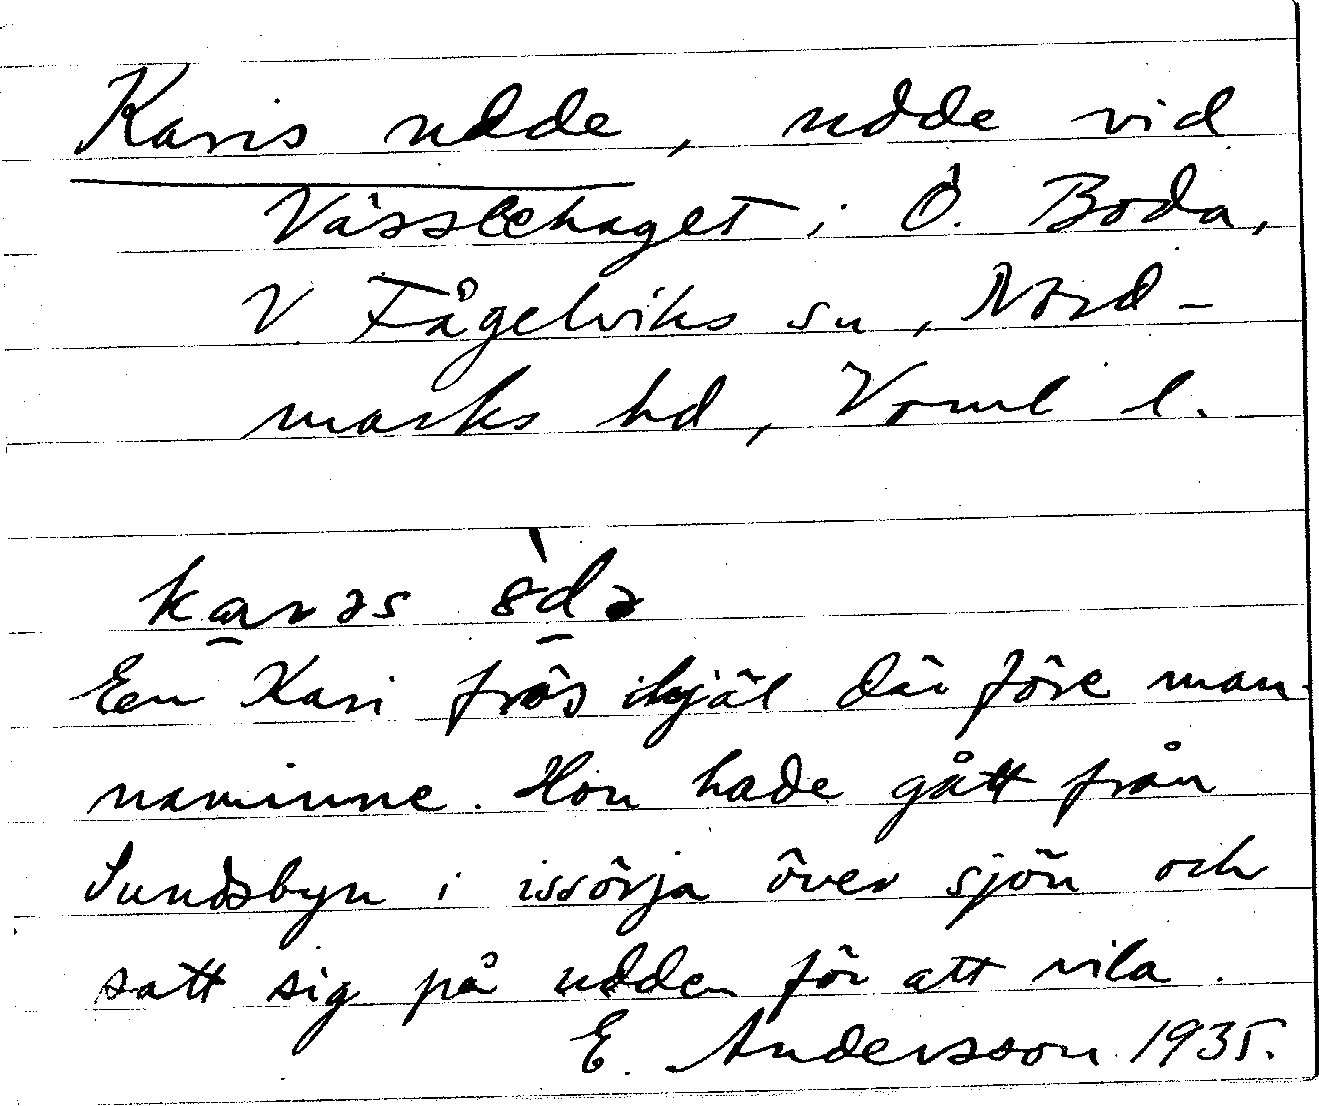 Karis udde, udde vid
Vässlehaget i Ö. Boda,
V Fågelviks sn, Nord-
marks hd, Vrml l.
karəs 8̀də
En Kari frös ihjäl där före man-
naminne. Hon hade gått från
Sundsbyn i issörja över sjön och
satt sig på udden för att vila.
E. Andersson 1935.